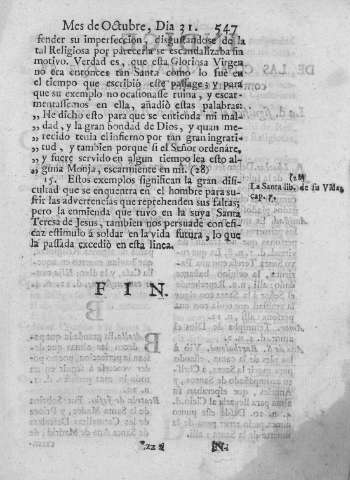 Mes de Octubre, Dia 31. 547
fender su imperfeccion, disgustandose de la
tal Religiosa por parecerla se escandalizaba sin
motivo. Verdad es, que esta Gloriosa Virgen
no era entonces tan Santa como lo fuè en
el tiempo que escribiò este passage; y para
que su exemplo no ocasionasse ruina, y escar-
mentassemos en ella, añadiò estas palabras:
,, He dicho esto para que se entienda mi mal-
,, dad, y la gran bondad de Dios, y quan me-
,, recido tenia el infierno por tan gran ingrati-
,, tud, y tambien porque si el Señor ordenàre,
,, y fuere servido en algun tiempo lea esto al-
,, guna Monja, escarmiente en mi. (28)
15. Estos exemplos significan la gran difi-
cultad que se enquentra en el hombre para su-
frir las advertencias que reprehenden sus faltas;
pero la enmienda que tuvo en la suya Santa
Teresa de Jesus, tambien nos persuade con efi-
caz estimulo à soldar en la vida futura, lo que
la passada excediò en esta linea.
(28)
La Santa lib. de su Vida,
cap. 7.
F I N.